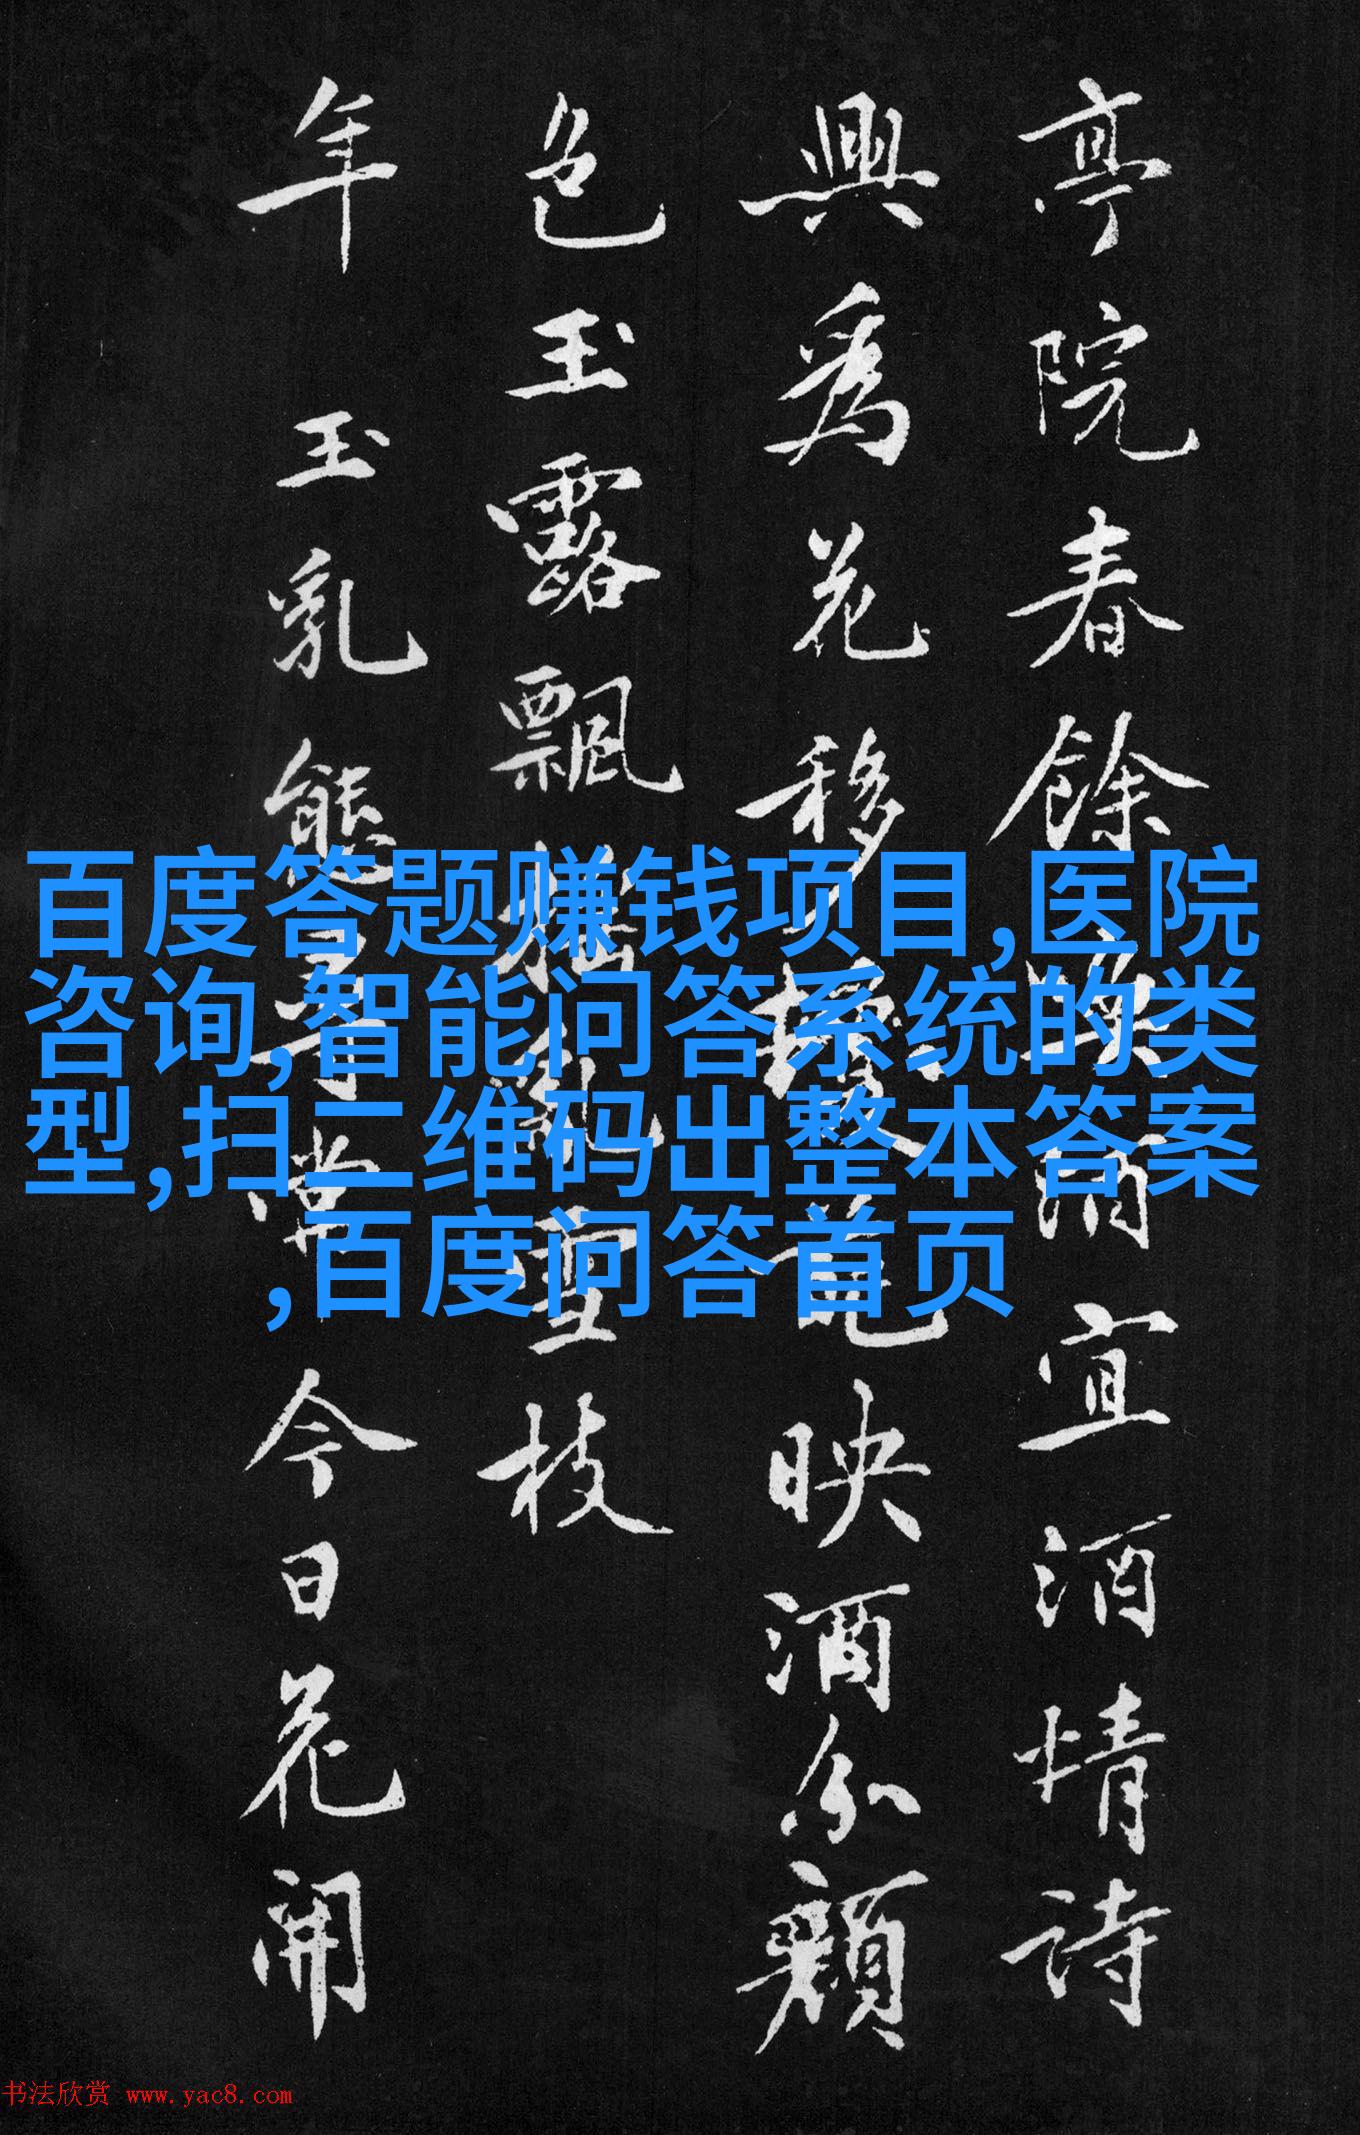 亭院春餘宜酒情詩
興爲花移映酒分顏
色玉露飄雪枝
年玉乳態常今日花開
百度答题赚钱项目,医院
咨询,智能问答系统的类
型,扫二维码出整本答案
,百度问答首页
书法欣赏 www.yac8.com